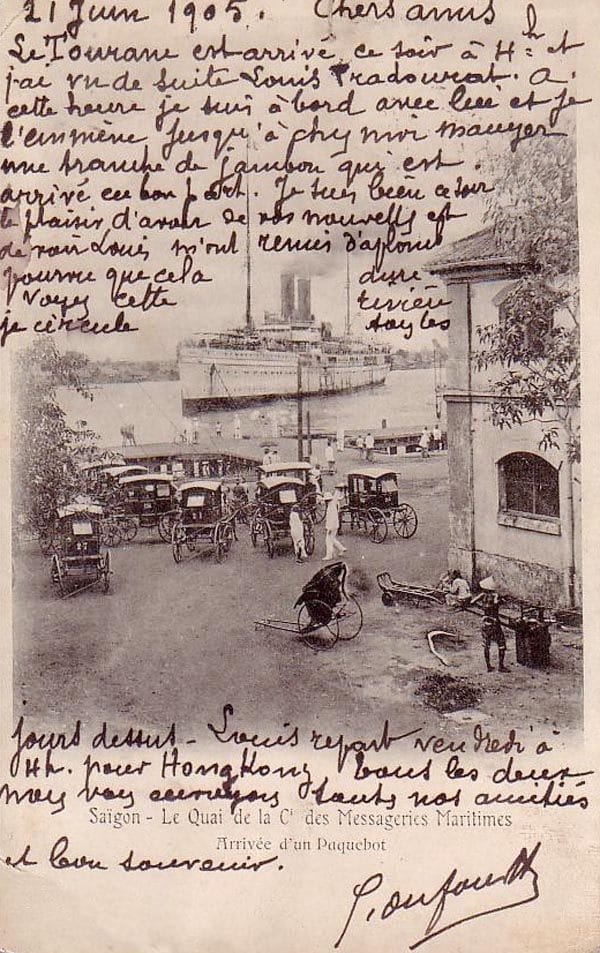 21 Juin 1905. Chers amis
Le Tourane est arrivé ce soir à 4h et
j'ai vu de suite Louis Pradourat. A
cette heure je suis à bord avec lui et je
l'emmène jusqu'à chez moi manger
une tranche de jambon qui est
arrivé en bon part. Je suis bien ce soir
le plaisir d'avoir de vos nouvells et
de voir Louis m'ont remis d'aplomb
pourvu que cela dure
Voyez cette rivière
je circule touts les
jours dessus - Louis repart vendredi à
4h. pour HongKong tous les deux
nous vous envoyons touts nos amitiés
Saïgon - Le Quai de la Cie des Messageries Maritimes
Arrivée d'un Paquebot
et bon souvenir.